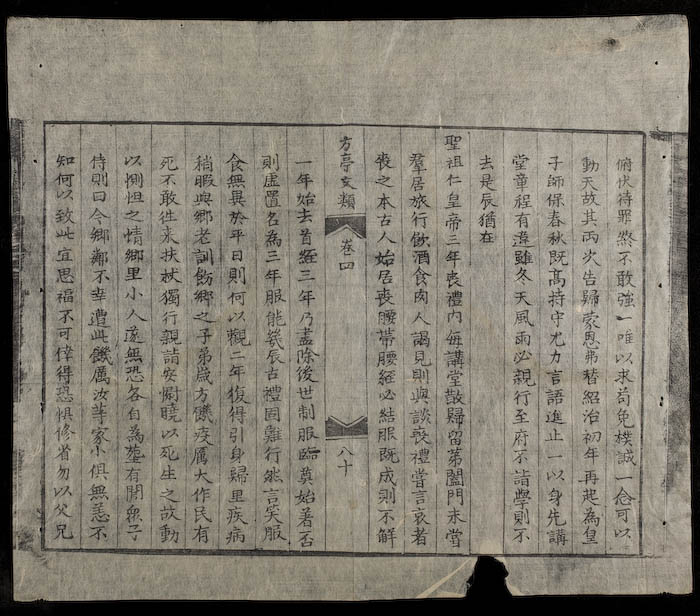 俯伏待罪終不敢強一唯以求苟免樸誠一念可以
動天故其丙次告歸蒙恩弗替紹治初年再起為皇
子師保春秋既高持守尤力言語進止一以身先講
堂章程有違雖冬天風雨必親行至府不詣學則不
去是辰猶在
聖祖仁皇帝三年喪禮內每講堂散歸留第闔門未嘗
羣居旅行飲酒食肉人謁見則與談喪禮嘗言哀者
喪之本古人始居喪腰帶腰絰必結服既成則不解
方亭文類
卷四
八十
一年始去首絰三年乃盡除後世制服臨奠始著否
則虛置名為三年服能幾辰古禮固難行然言笑服
食無異於平日則何以觀二年復得引身歸里疾病
稍暇與鄉老訓飭鄉之子弟歲方饑疫厲大作民有
死不敢徃来扶杖獨行親詣安慰曉以死生之故動
以惻怛之情鄉里小人遂無恐各自為塟有開衆子
侍則曰今鄉鄰不幸遭此饑厲汝等家小俱無恙不
知何以致此宜思福不可倖得恐惧修省勿以父兄